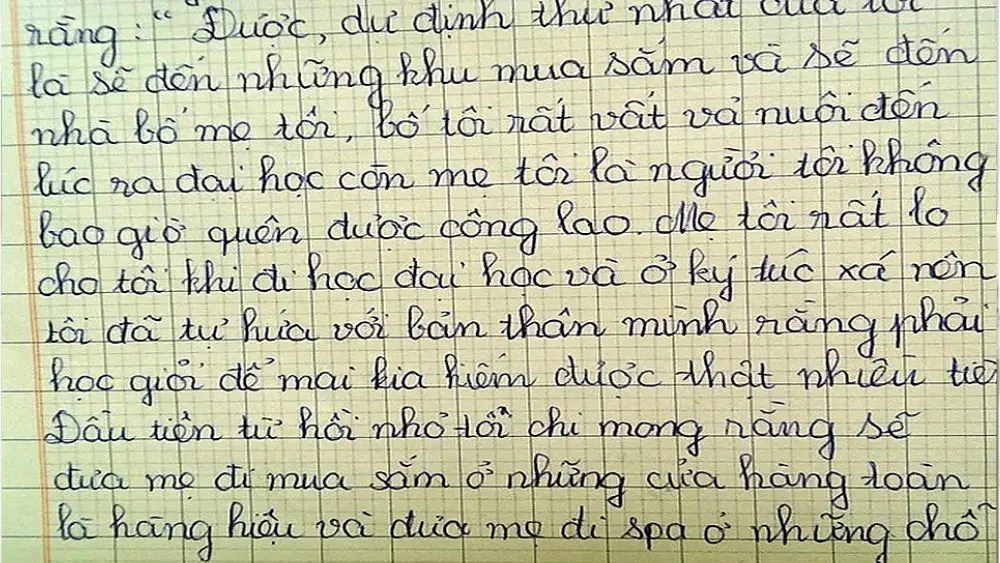 rằng: "Được, dự định thứ nhất của tôi
là sẽ đến những khu mua sắm và sẽ đến
nhà bố mẹ tôi, bố tôi rất vất vả nuôi đến
lúc ra đại học còn mẹ tôi là người tôi không
bao giờ quên được công lao. Mẹ tôi rất lo
cho tôi khi đi học đại học và ở ký túc xá nên
tôi đã tự hứa với bản thân mình rằng phải
học giỏi để mai kia kiếm được thật nhiều tiề
Đầu tiên từ hồi nhỏ tôi chỉ mong rằng sẽ
đưa mẹ đi mua sắm ở những cửa hàng toàn
là hàng hiệu và đưa mẹ đi spa ở những chỗ